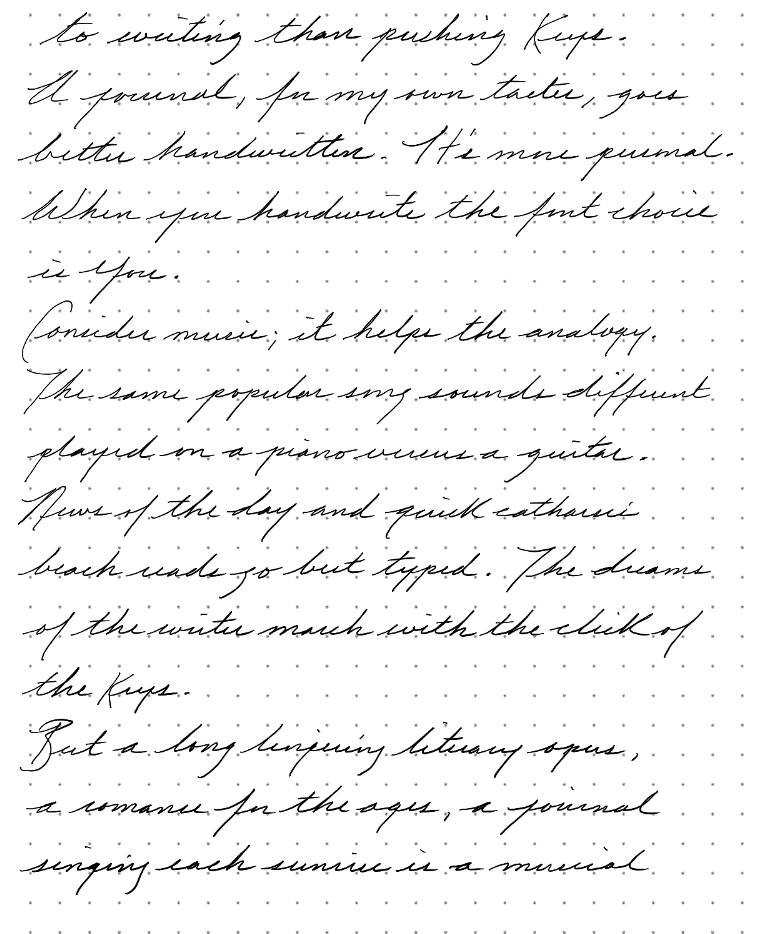 to writing than pushing Keys.
A journal, for my own tastes, goes
better handwritten. It's more personal.
When you handwrite the font choice
is You.
Consider music; it helps the analogy.
The same popular song sounds different
played on a piano versus a guitar.
News of the day and quick catharsic
beach reads go best typed. The dreams
of the writer march with the click of
the Keys.
But a long lingering literary opus,
a romance for the ages, a journal
singing each sunrise is a musical